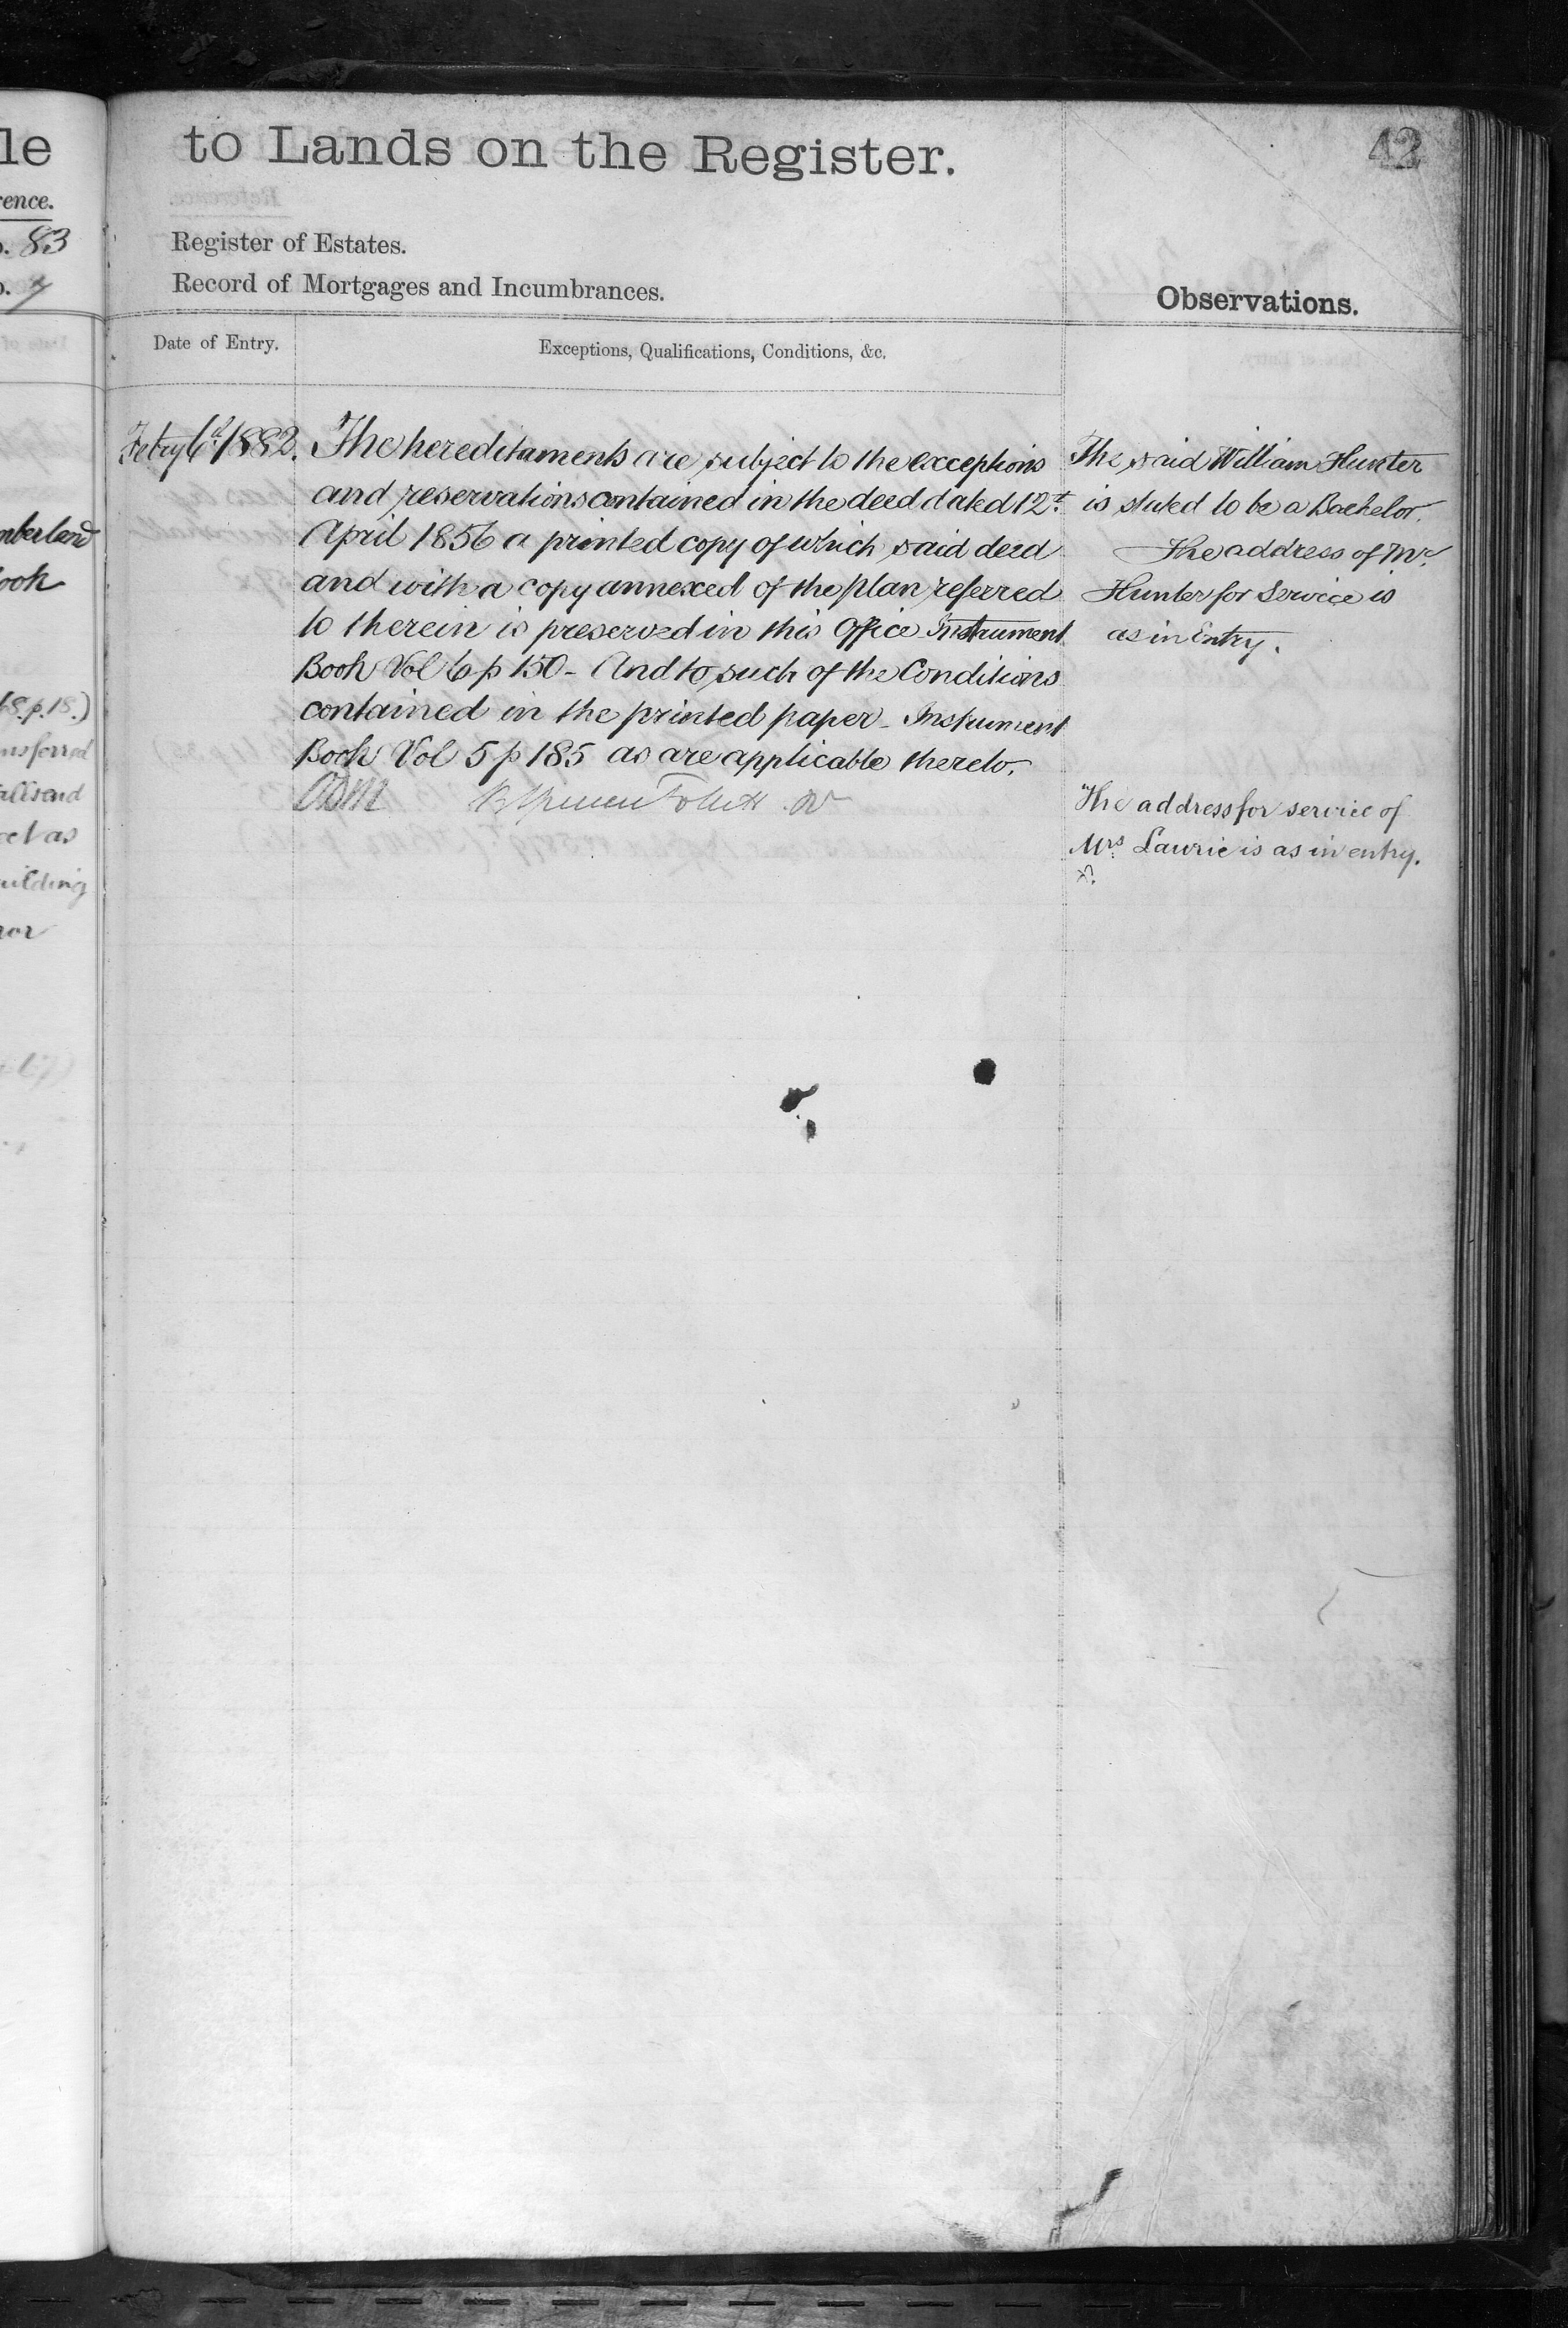 le
to Lands on the Register.
42
rence.
83
Register of Estates.
Record of Mortgages and Incumbrances.
Observations.
Date of Entry.
Exceptions, Qualifications, Conditions, &c.
Febry 6th 1882.
The hereditaments are subject to the exceptions
and reservations contained in the deed dated 12th
April 1856 a printed copy of which said deed
and with a copy annexed of the plan referred
to therein is preserved in this Office Instrument
Book Vol 6 p 150 - And to such of the Conditions
contained in the printed paper - Instrument
Book Vol 5 p 185 as are applicable thereto.
The said William Hunter
is stated to be a Bachelor.
The address of Mr.
Hunter for Service is
as in Entry.
The address for service of
Mrs Laurie is as in entry.
mberland
ook
18. p. 18.)
nsferred
allsend
cel as
uilding
nor